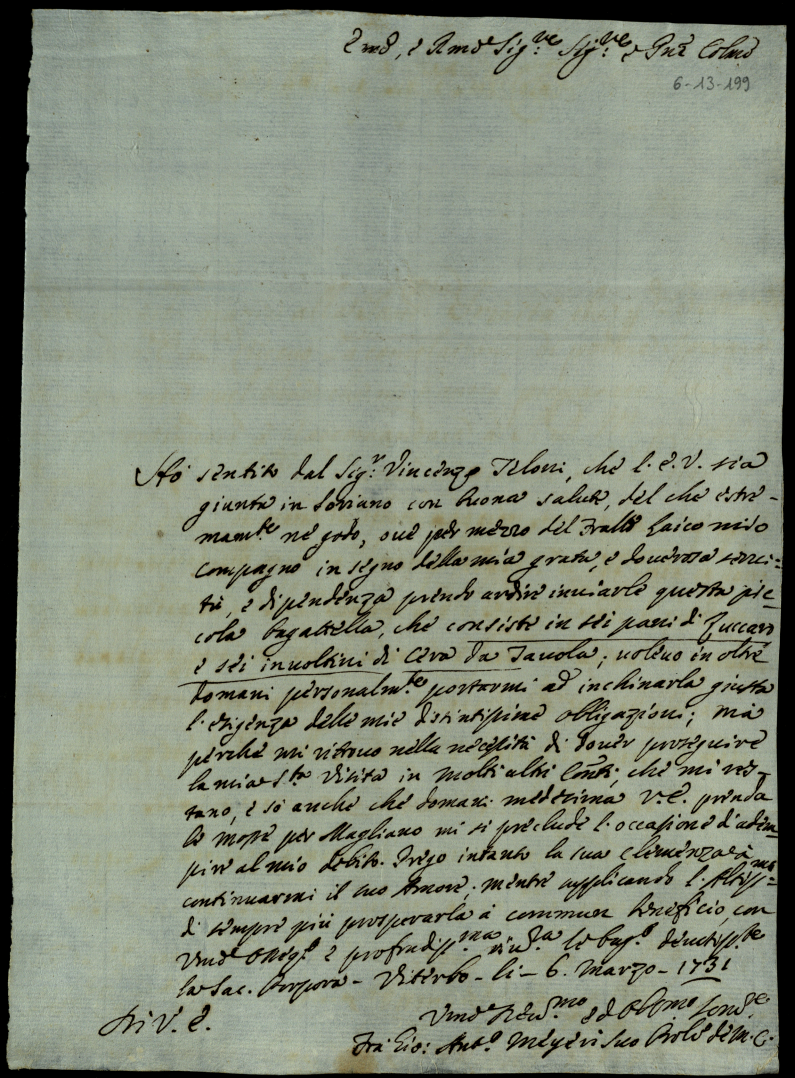 Emo, e Rmo Sig.re Sig.re e Pne Colmo
6-13-199
Hó sentito dal Sig.r Vincenzo Teloni, che l'E.V. sia
giunta in Soriano con buona salute, del che estre-
mam.te ne godo, onde per mezzo del Fratello Laico mio
compagno in segno della mia grata, e doverosa servi=
tù, e dipendenza prendo ardire inviarle questa pic=
cola bagattella, che consiste in sei pani di Zuccaro
e sei involtini di Cera da Tavola; volevo in oltre
domani personalm.te portarmi ad inchinarla giusta
l'esigenza delle mie distintissime obbligazioni; mà
perche mi ritrovo nella necessità di dover proseguire
la mia S.ta Visita in molti altri Conti, che mi res-
tano, e sò anche che domani medesima V.E. prenda
le mosse per Magliano mi si preclude l'occasione d'adem
pire al mio debito. Prego intanto la sua Clemenza à
continuarmi il suo Amore, mentre supplicando l'Altiss.mo
di sempre più prosperarla à commun beneficio, con
profondiss.ma le bag.o
la Sac. Porpora - Viterbo - li - 6. Marzo - 1731
Di V. E.
Umo Dev.mo ed Obbmo
Fra Gio: Ant.o M.C.